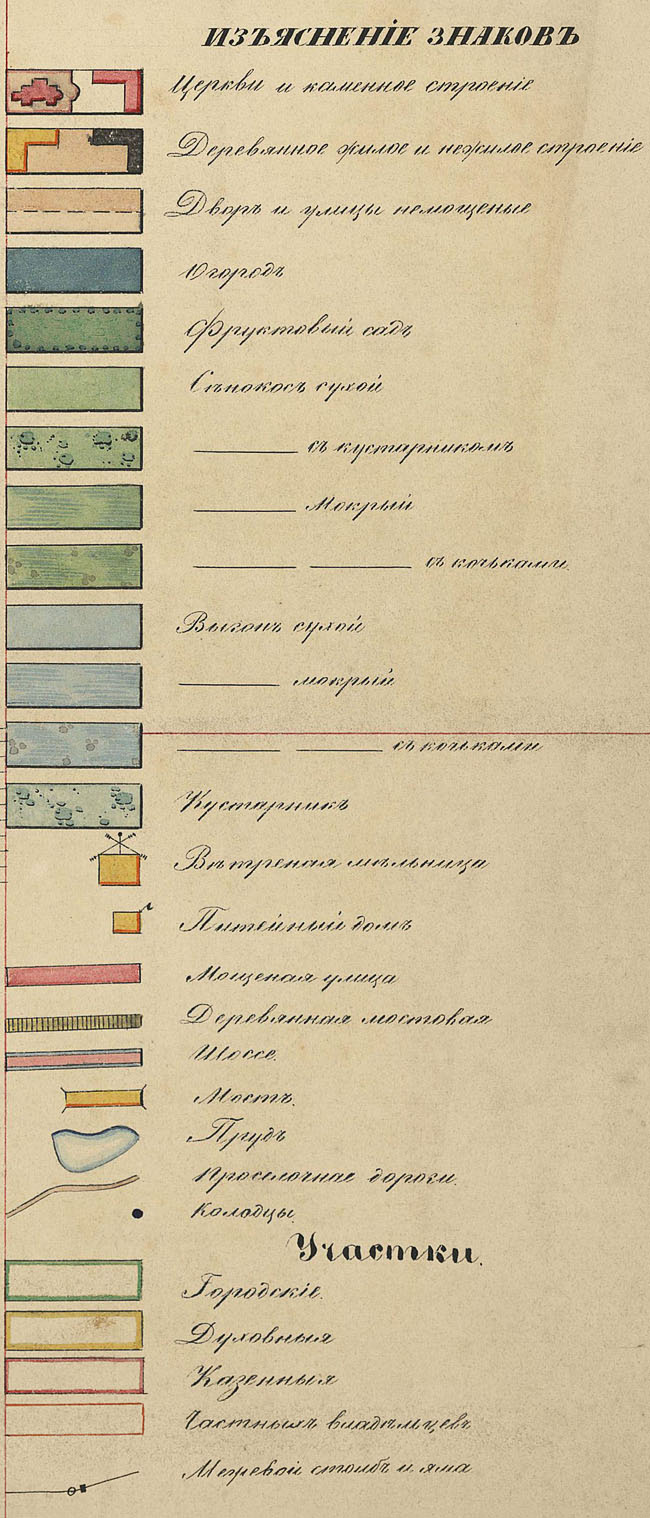 ИЗЪЯСНЕНІЕ ЗНАКОВЪ
Церкви и каменное строеніе
Деревянное жилое и нежилое строеніе
Дворъ и улицы немощеные
Огородъ
Фруктовый садъ
Сѣнокосъ сухой
съ кустарникомъ
Мокрый
съ кочьками
Выгонъ сухой
мокрый
съ кочьками
Кустарникъ
Вѣтреная мѣльница
Питейный домъ
Мощеная улица
Деревянная мостовая
Шоссе.
Мостъ.
Прудъ
Проселочная дороги.
Колодцы.
Участки.
Городскіе.
Духовныя
Казенныя
Частныхъ владѣльцевъ
Межевой столбъ и яма